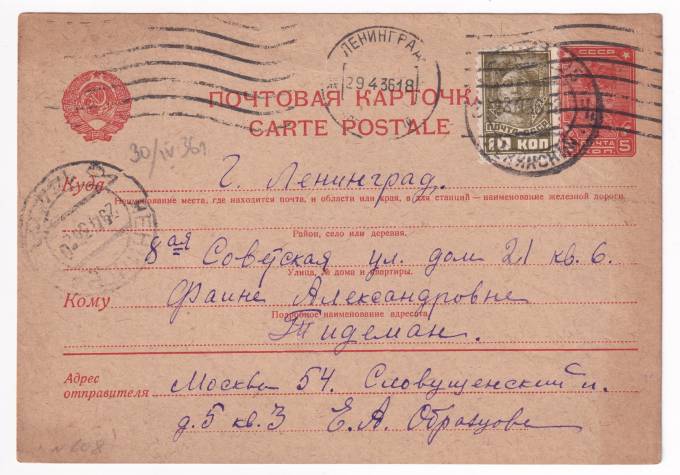 ЛЕНИНГРАД
29.4.36 18
СССР
ПОЧТОВАЯ КАРТОЧКА
CARTE POSTALE
ПОЧТА СССР
КОП
ПОЧТА
5 КОП.
30/IV 36г
Куда г. Ленинград.
Наименование места, где находится почта, и области или края, а для станций — наименование железной дороги.
Район, село или деревня.
8ая Советская ул. дом 21 кв. 6.
Улица, № дома и квартиры.
Кому Фаине Александровне
Подробное наименование адресата
Тидеман.
Адрес отправителя Москва 54. п.
д. 5 кв. 3 Е. А. Образцова